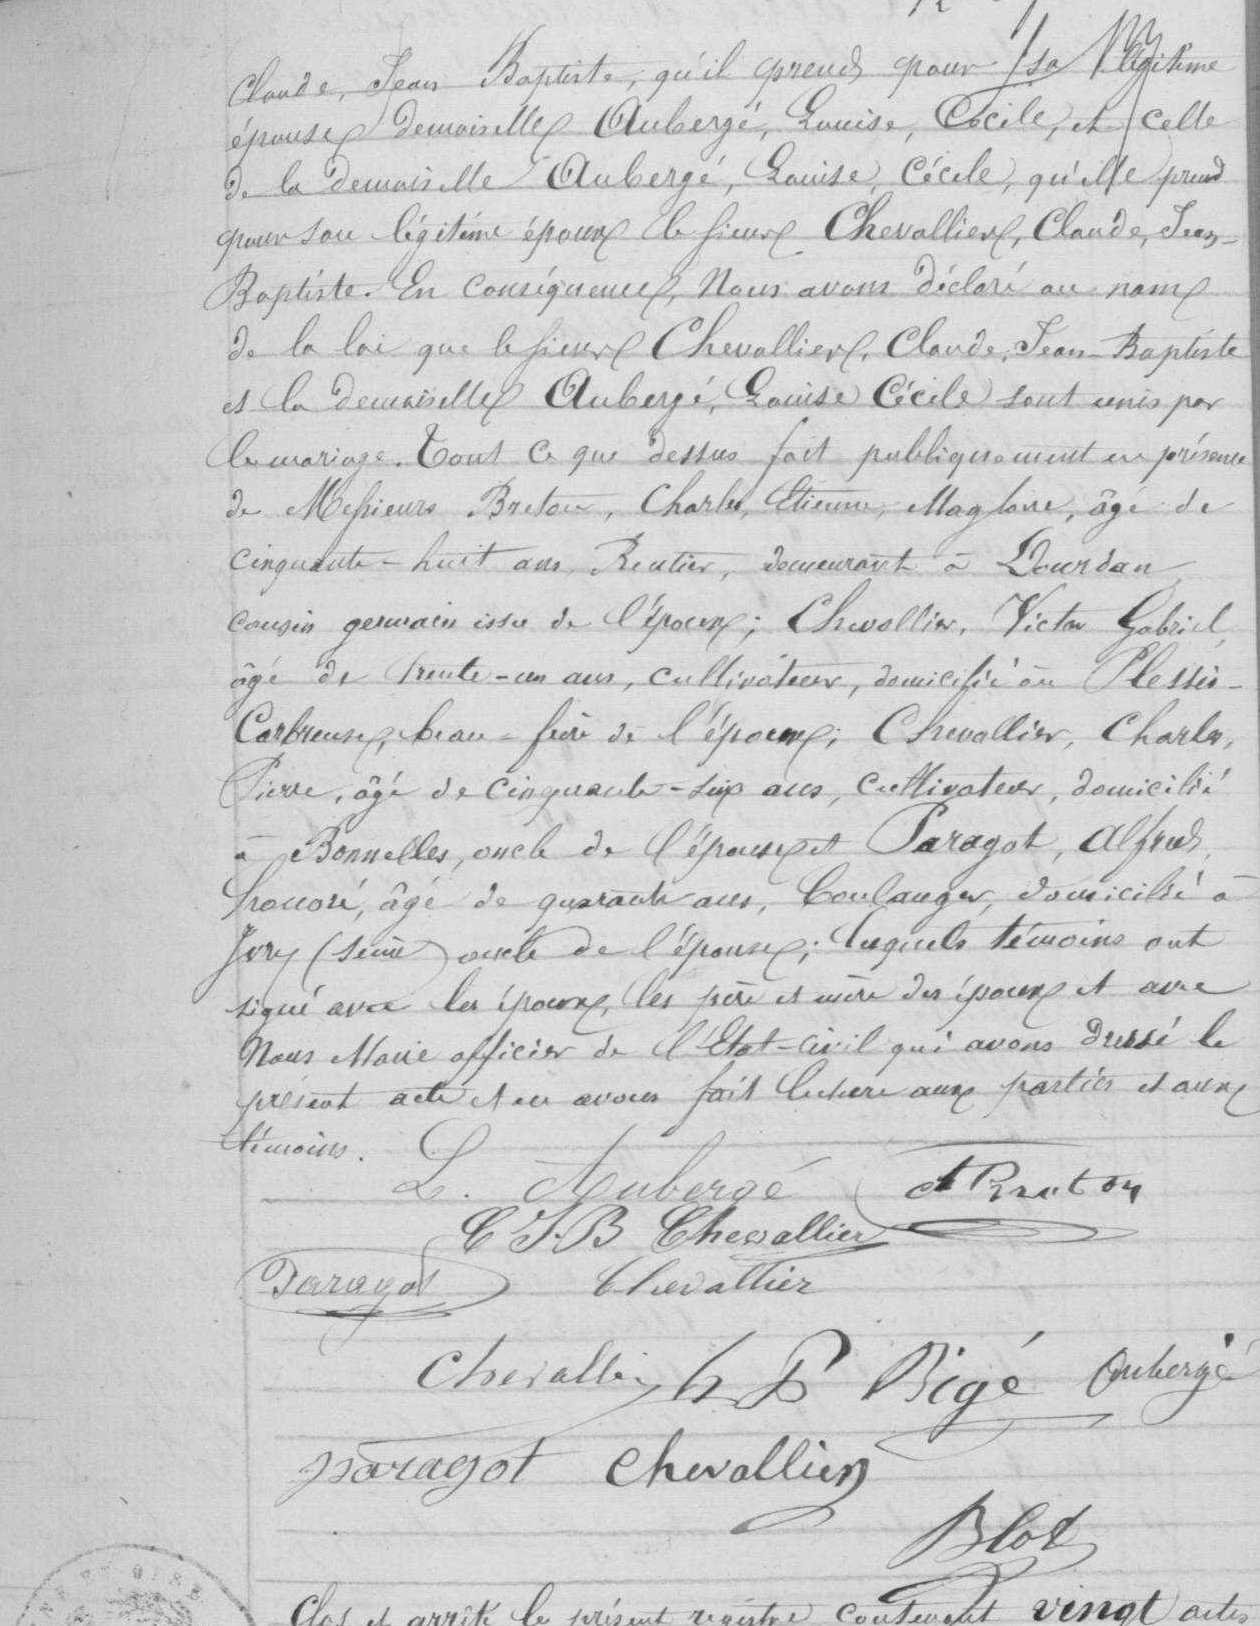 Claude, Jean Baptiste, qu'il prend pour sa légitime
épouse demoiselle Aubergé, Louise, Cécile, et celle
de la demoiselle Aubergé, Louise, Cécile, qu'elle prend
pour son légitime époux le sieur Chevallier, Claude, Jean-
Baptiste. En conséquence, Nous avons déclaré au nom
de la loi que le sieur Chevallier, Claude, Jean-Baptiste
et la demoiselle Aubergé, Louise Cécile sont unis par
le mariage. Tout ce que dessus fait publiquement en présence
de Messieurs Breton, Charles, Etienne, Magloire, âgé de
cinquante-huit ans, Rentier, demeurant à Dourdan,
cousin germain issu de l'époux; Chevallier, Victor Gabriel,
âgé de trente-un ans, cultivateur, domicilié au Plessis-
Corbreuse, beau-frère de l'époux; Chevallier, Charles,
Pierre, âgé de cinquante-six ans, cultivateur, domicilié
à Bonnelles, oncle de l'épouse et Paragot, Alfred,
honoré, âgé de quarante ans, boulanger, domicilié à
Ivry (Seine) oncle de l'épouse; lesquels témoins ont
signé avec les époux, les père et mère des époux et avec
Nous Maire officier de l'Etat-civil qui avons dressé le
présent acte et en avons fait lecture aux parties et aux
témoins.
L. Aubergé Breton
C J.B Chevallier
Paragot Chevallier
Chevallier Bigé Aubergé
paragot Chevallier
Blot
ET OISE
Clos et arrêté le présent registre contenant vingt actes